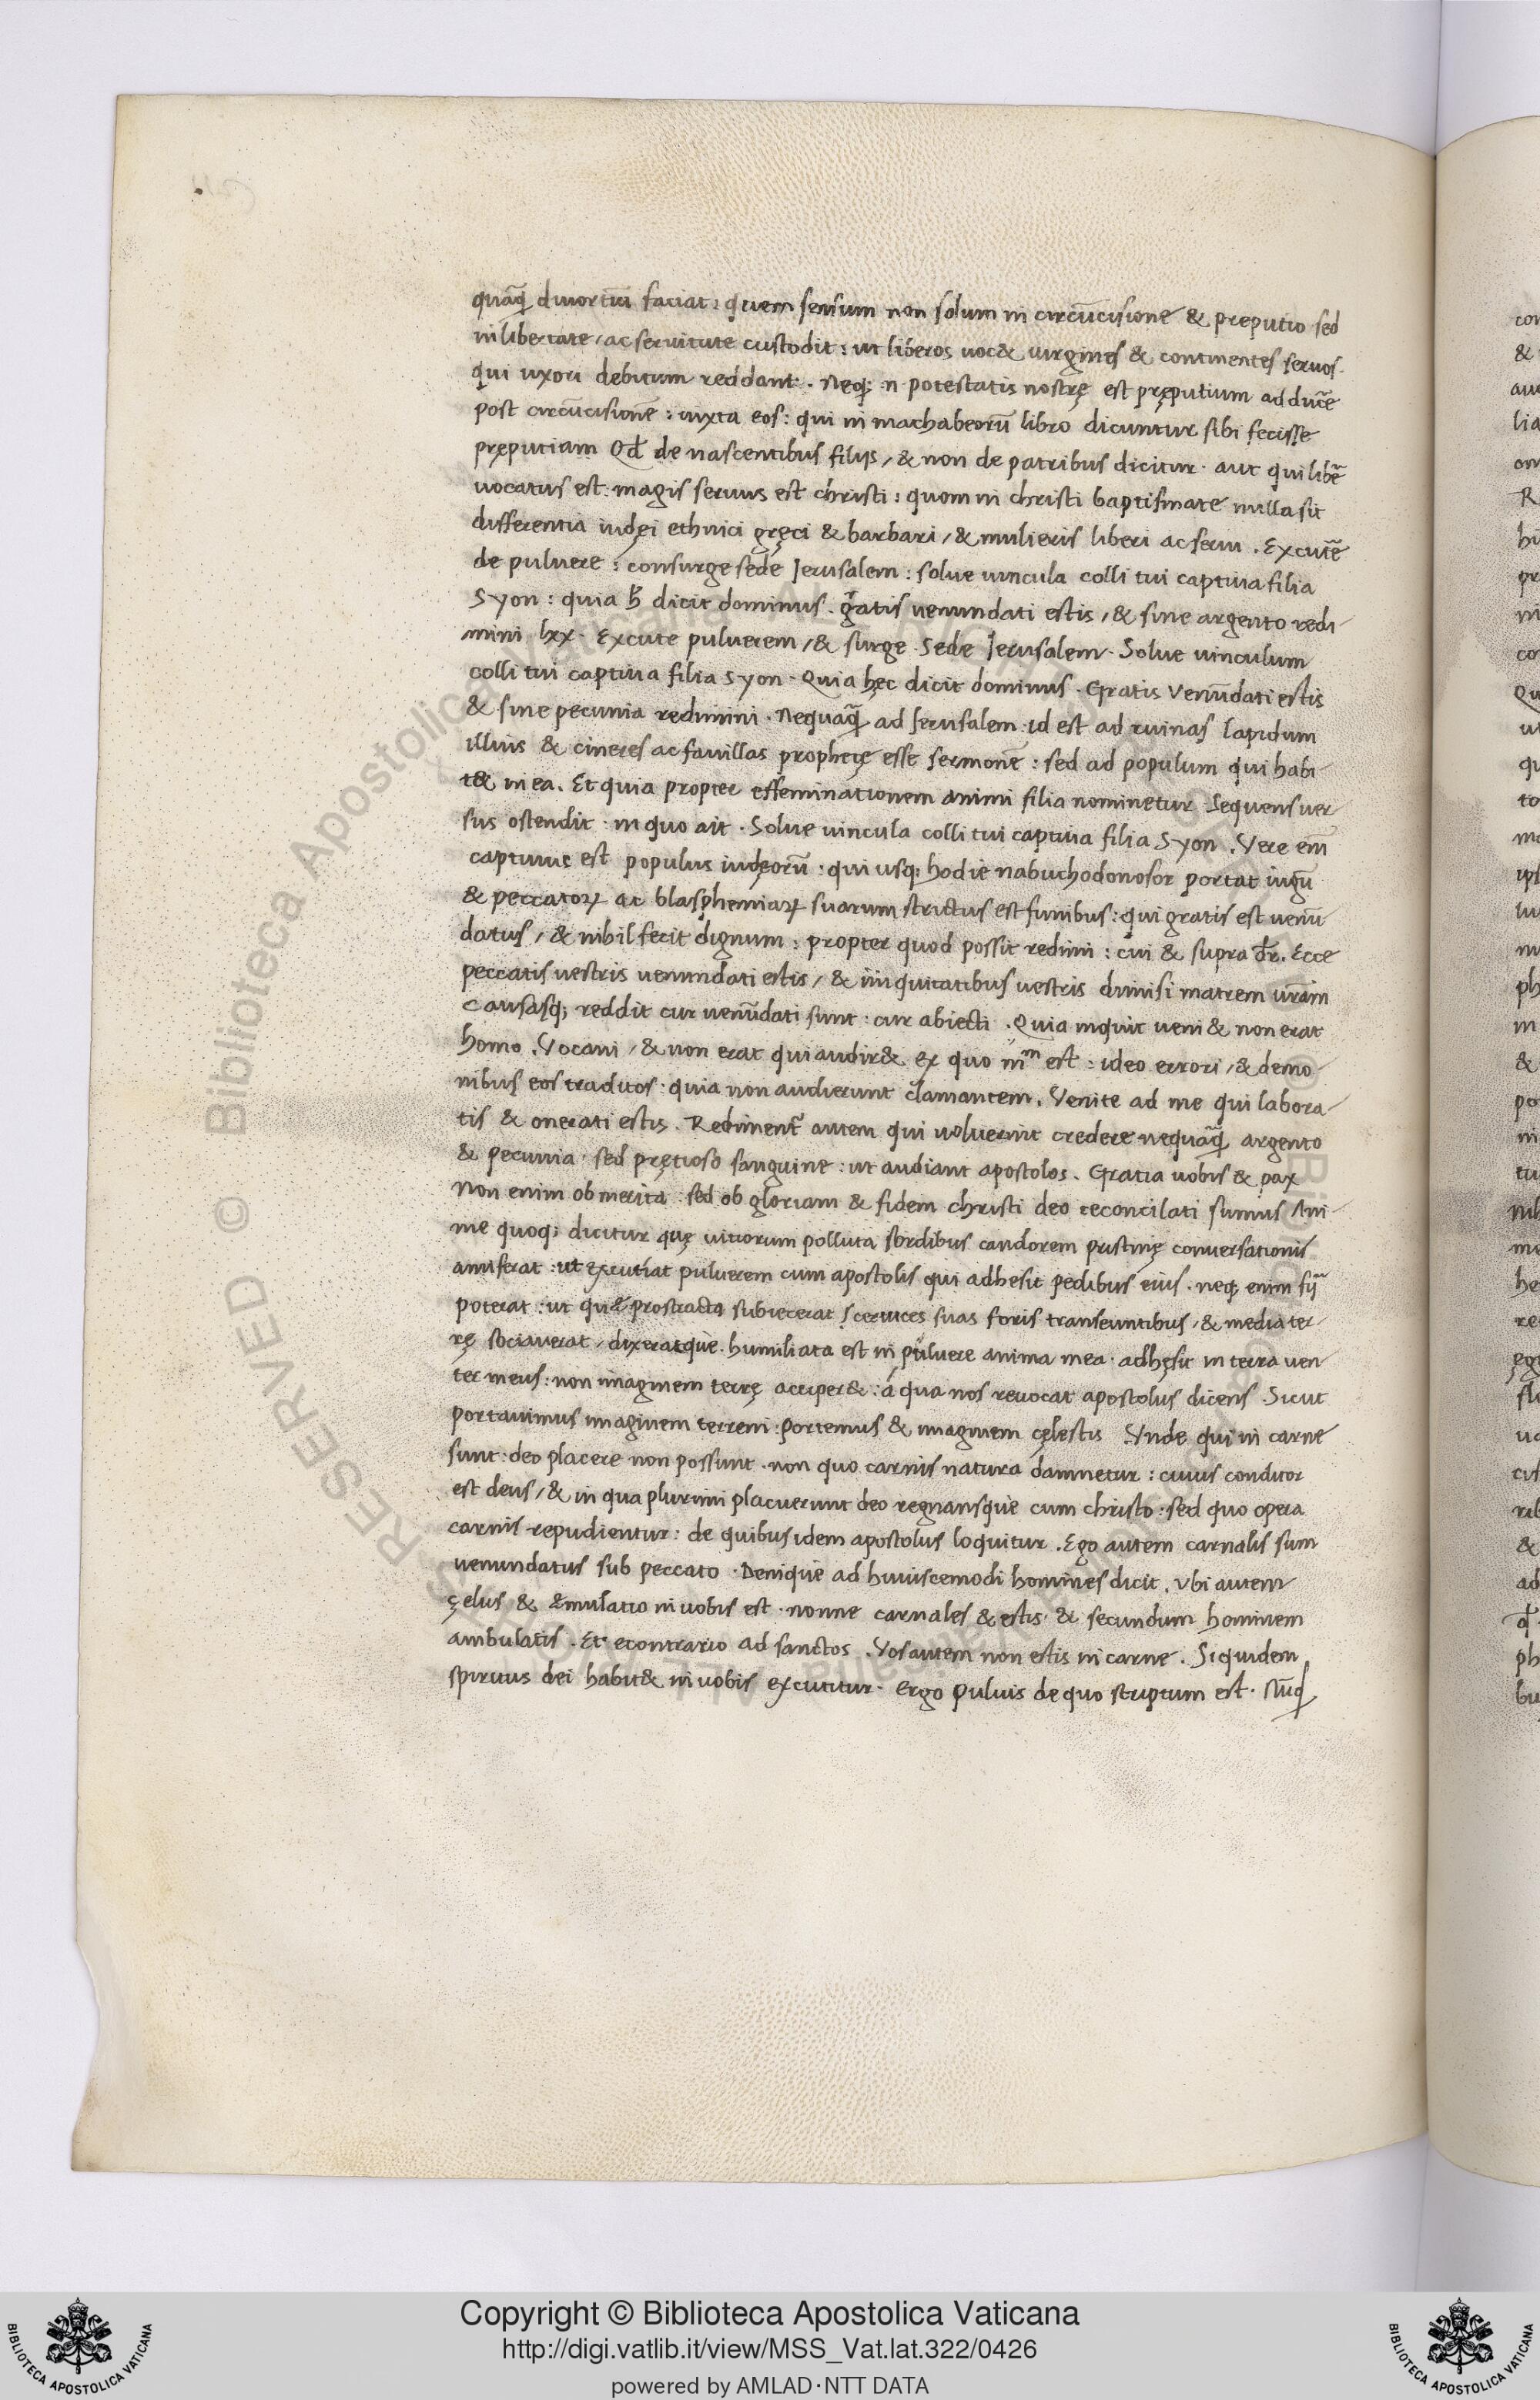 quāq̄ diuortiū faciat: quem sensum non solum in circūcisione & preputio sed
in libertate/ ac seruitute custodit: ut liberos uoc& uirgines & continentes seruos.
qui uxori debitum reddant. Neq; n potestatis nostrę est pręputium adducẽ
post circūcisionẽ: iuxta eos: qui in machabeorū libro dicuntur sibi fecisse
pręputiam Qd̄ de nascentibus filijs/ & non de patribus dicitur. aut qui libẽ
uocatus est: magis seruus est christi: quom in christi baptismate nulla sit
differentia iudęi ethnici gręci & barbari/ & mulieris liberi ac serui. Excutẽ
de puluere: consurge sede Jerusalem: solue uincula colli tui captiua filia
Syon: quia h̄ dicit dominus. gratis uenundati estis/ & sine argento redi-
mini lxx. Excute puluerem/ & surge Sede Jerusalem. Solue uinculum
colli tui captiua filia Syon. Quia hęc dicit dominus. Gratis Venūdati estis
& sine pecunia redimini. Nequaq̄ ad Jerusalem id est ad ruinas lapidum
illius & cineres ac fauillas prophetę esse sermonẽ: sed ad populum qui habi-
t& in ea. Et quia propter effeminationem animi filia nominetur Sequens uer
sus ostendit: in quo ait. Solue uincula colli tui captiua filia Syon. Vere em̄
captiuus est populus iudęorū: qui usq; hodie nabuchodonosor portat iugū
& peccatoꝝ ac blasphemiaꝝ suarum strictus est funibus: qui gratis est uenū-
datus/ & nihil fecit dignum: propter quod possit redimi: cui & supra dr̄. Ecce
peccatis uestris uenundati estis/ & iniquitatibus uestris dimisi matrem ur̄am
Causasq; reddit cur uenūdati sunt: cur abiecti. Quia inquit ueni & non erat
homo. Vocaui/ & non erat qui audir& ex quo m̄m est: ideo errori/ & demo
nibus eos traditos: quia non audierunt clamantem. Venite ad me qui labora-
tis & onerati estis. Redimentr̄ autem qui uoluerint credere nequaq̄ argento
& pecunia. sed prętioso sanguine: ut audiant apostolos. Gratia uobis & pax
Non enim ob merita: sed ob gloriam & fidem christi deo reconcilati sumus Ani-
me quoq; dicitur quę uitiorum polluta sordibus candorem pristinę conuersationis
amiserat: ut excutiat puluerem cum apostolis qui adhesit pedibus eius. neq; enim
poterat: ut quę prostracta subiecerat sceruices suas foris transeuntibus/ & media ter-
rę sociauerat/ dixeratque. humiliata est in puluere anima mea. adhęsit in terra uen
ter meus: non imaginem terrę acciper&: á qua nos reuocat apostolus dicens Sicut
portauimus imaginem terreni: portemus & imaginem cęlestis Vnde qui in carne
sunt: deo placere non possunt. non quo carnis natura damnetur: cuius conditor
est deus/ & in qua plurimi placuerunt deo regnansque cum christo: sed quo opera
carnis repudientur: de quibus idem apostolus loquitur. Ego autem carnalis sum
uenundatus sub peccato. Denique ad huiuscemodi homines dicit. Vbi autem
çelus & Emulatio in uobis est. nonne carnales & estis. & secundum hominem
ambulatis. Et econtrario ad sanctos. Vos autem non estis in carne. Siquidem
spiritus dei habit& in uobis excutitur. Ergo puluis de quo scriptum est.
Copyright © Biblioteca Apostolica Vaticana
http://digi.vatlib.it/view/MSS_Vat.lat.322/0426
powered by AMLAD·NTT DATA